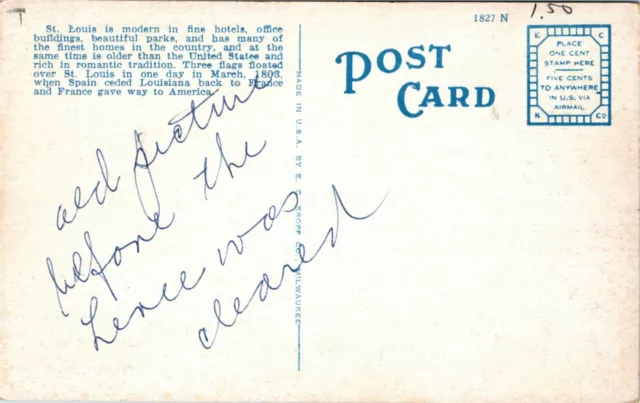 1827 N
1.50
St. Louis is modern in fine hotels, office
buildings, beautiful parks, and has many of
the finest homes in the country, and at the
same time is older than the United States and
rich in romantic tradition. Three flags floated
over St. Louis in one day in March, 1803,
when Spain ceded Louisiana back to France
and France gave way to America.
POST
CARD
E C
PLACE
ONE CENT
STAMP HERE
FIVE CENTS
TO ANYWHERE
IN U.S. VIA
AIRMAIL
K Co
MADE IN U.S.A. BY E. C. KROPP CO., MILWAUKEE
old picture
before the
Levee was
cleared